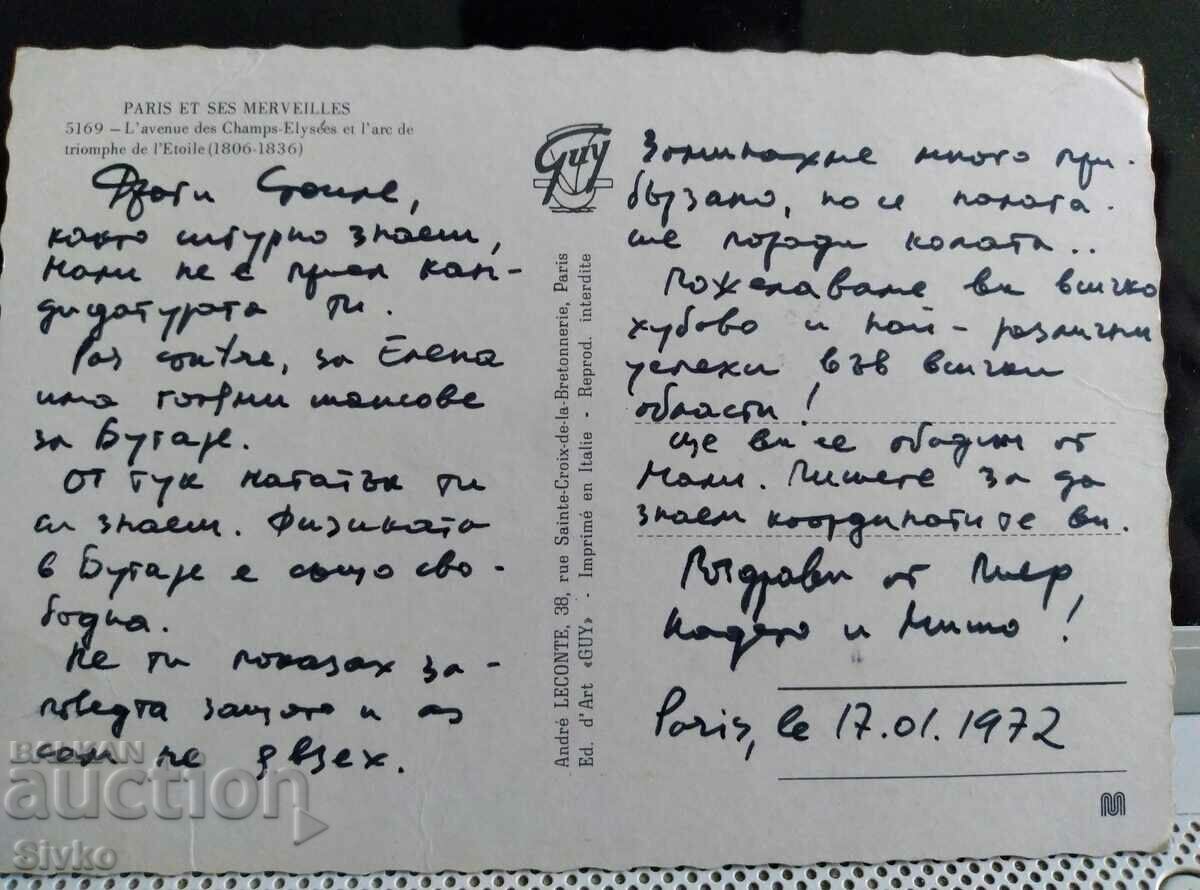 PARIS ET SES MERVEILLES
5169 – L'avenue des Champs-Elysées et l'arc de
triomphe de l'Etoile (1806-1836)
Guy
Стоиле,
както сигурно знаеш,
Мали не е приел кан-
дидатурата ти.
Par contre, за Елена
има големи шансове
за Бутаре.
От тук нататък ти
си знаеш. Физиката
в Бутаре е също сво-
бодна.
Не ти показах за-
поведта защото и аз
сам не я взех.
Заминахме много при-
бързано, но се налага-
ше поради колата..
Пожелаваме ви всичко
хубаво и най-различни
успехи във всички
области!
Ще ви се обадим от
Мали. Пишете за да
знаем координатите ви.
Поздрави от Пиер,
Надето и Мишо!
Paris, le 17.01.1972
André LECONTE, 38, rue Sainte-Croix-de-la-Bretonnerie, Paris
Ed. d'Art «GUY» - Imprimé en Italie - Reprod. interdite
M
BALKAN
auction
Sivko